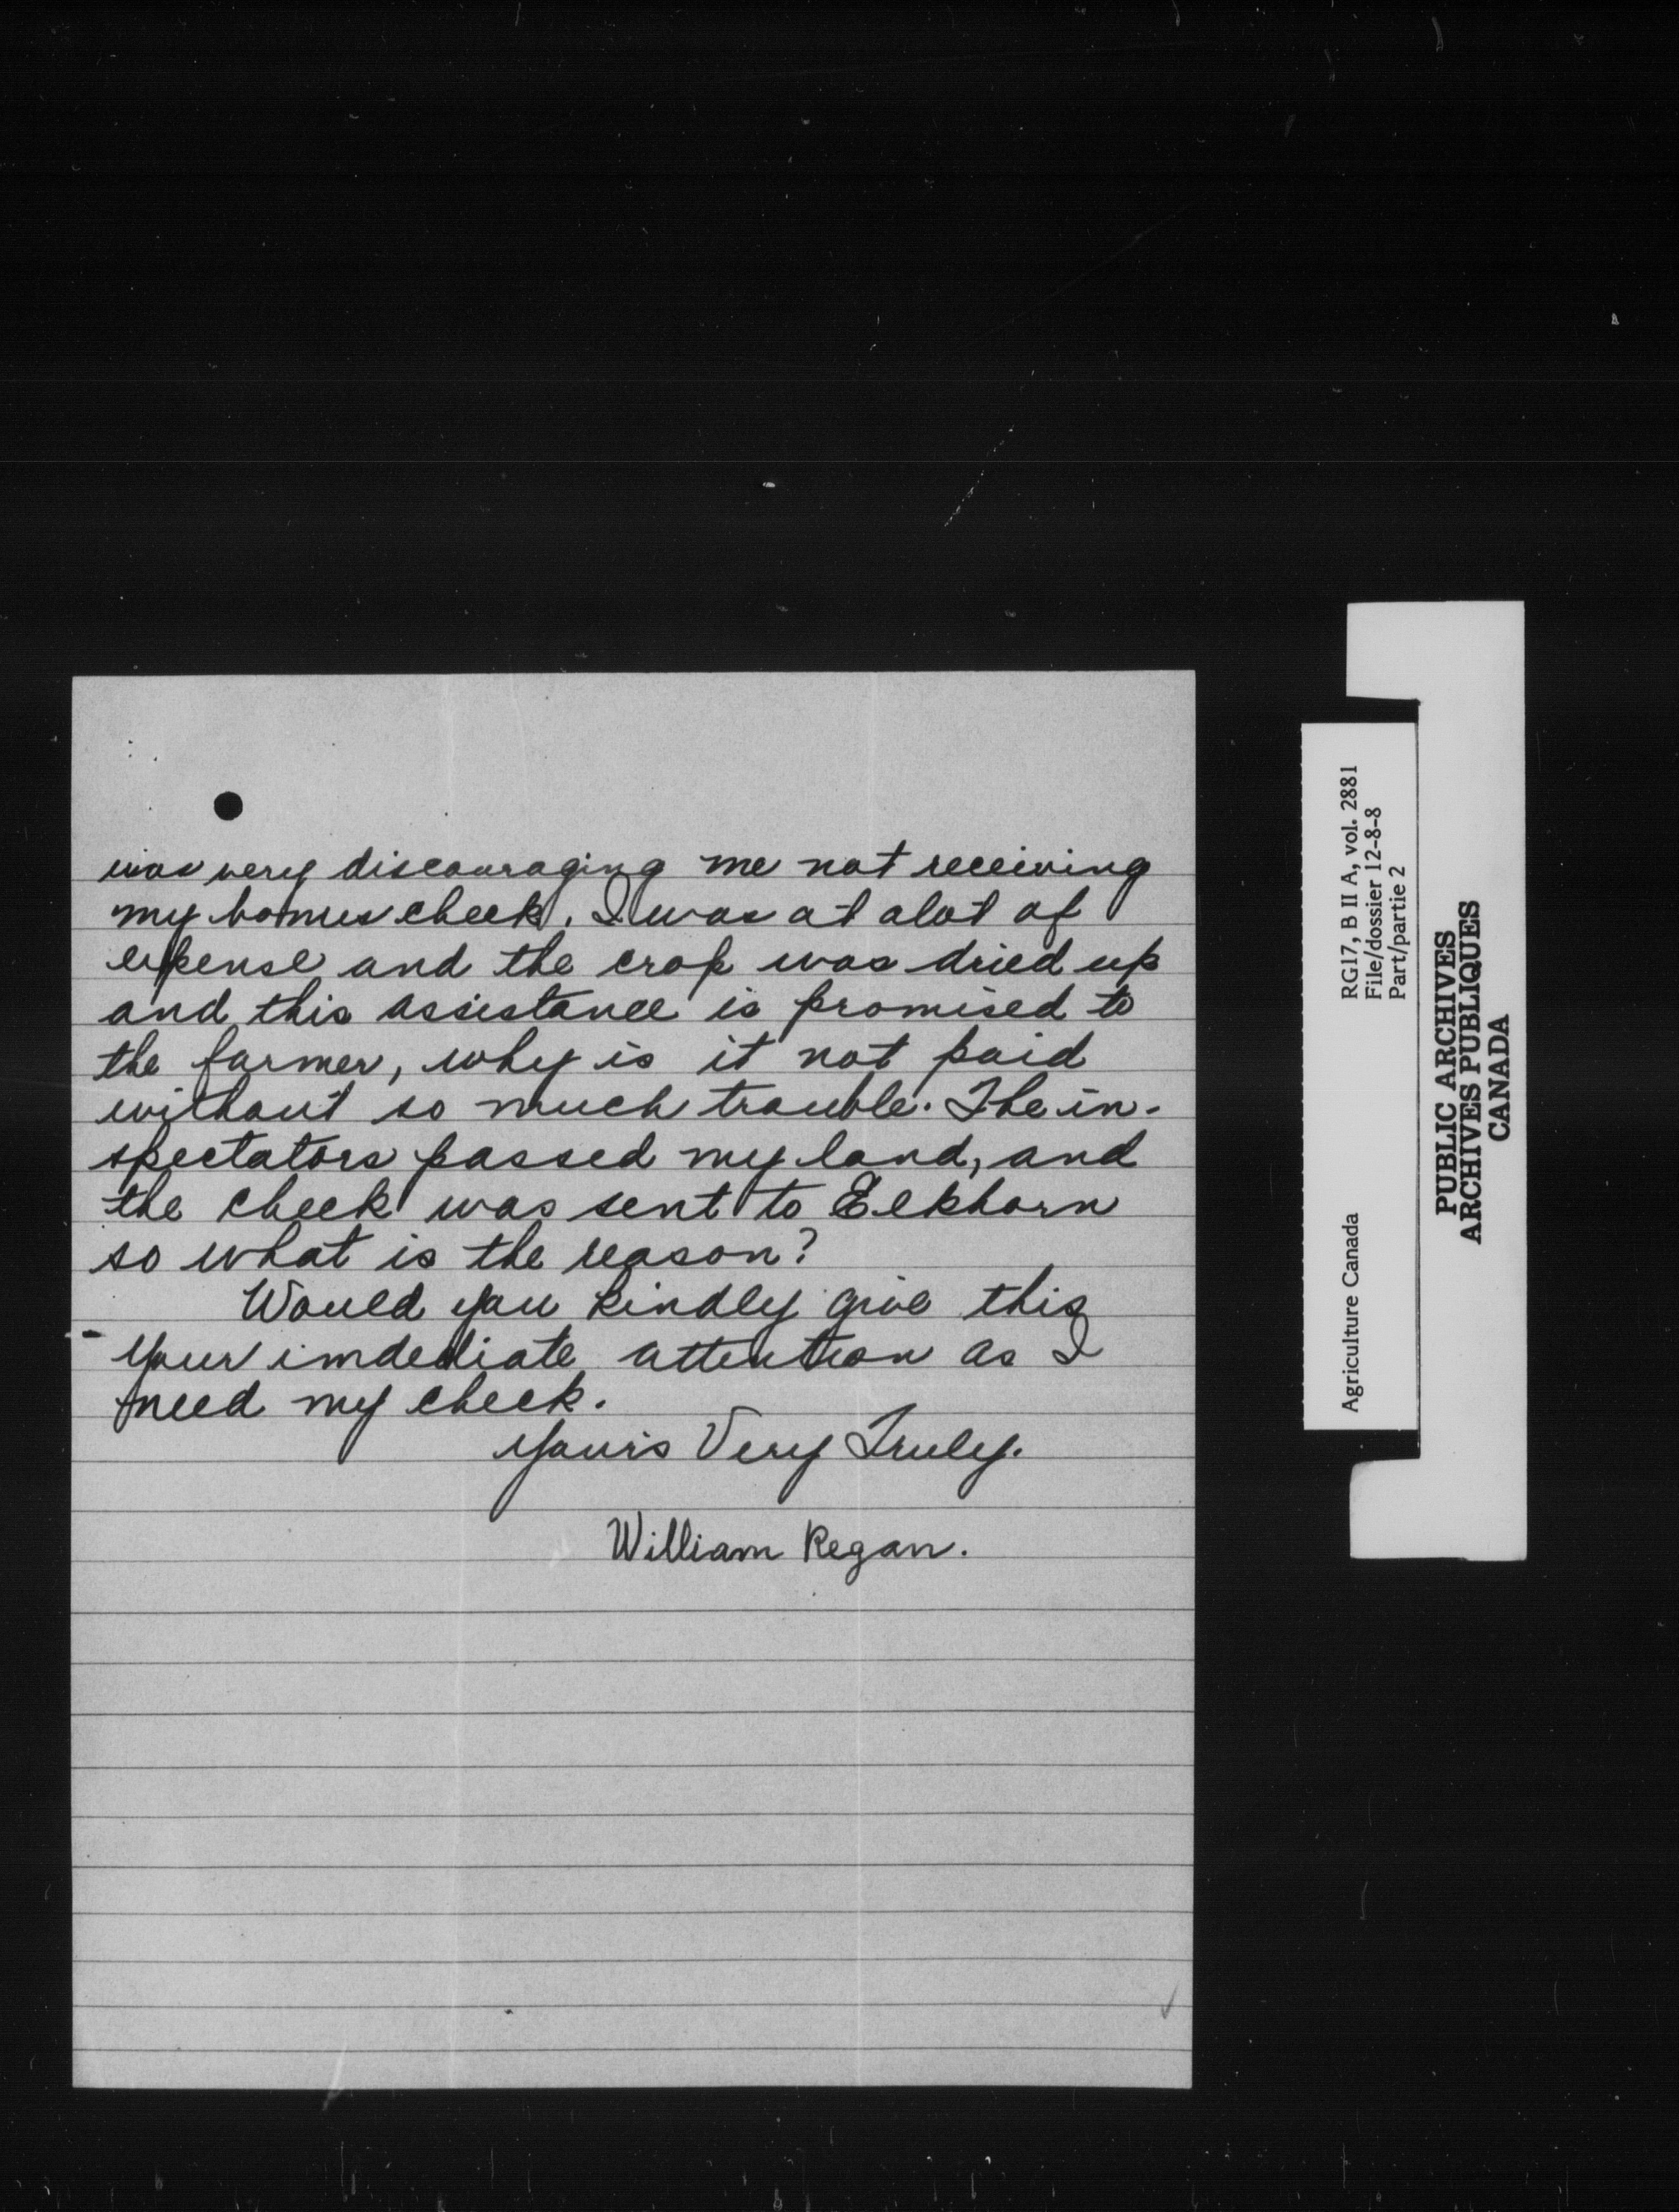 was very discouraging me not receiving
my bonus check. I was at alot of
expense and the crop was dried up
and this assistance is promised to
the farmer, why is it not paid
without so much trouble. The in-
spectators passed my land, and
the check was sent to Elkhorn
so what is the reason?
Would you kindly give this
your imdediate attention as I
need my check.
Yours Very Truly.
William Regan.
RG17, B II A, vol. 2881
File/dossier 12-8-8
Part/partie 2
Agriculture Canada
PUBLIC ARCHIVES
ARCHIVES PUBLIQUES
CANADA